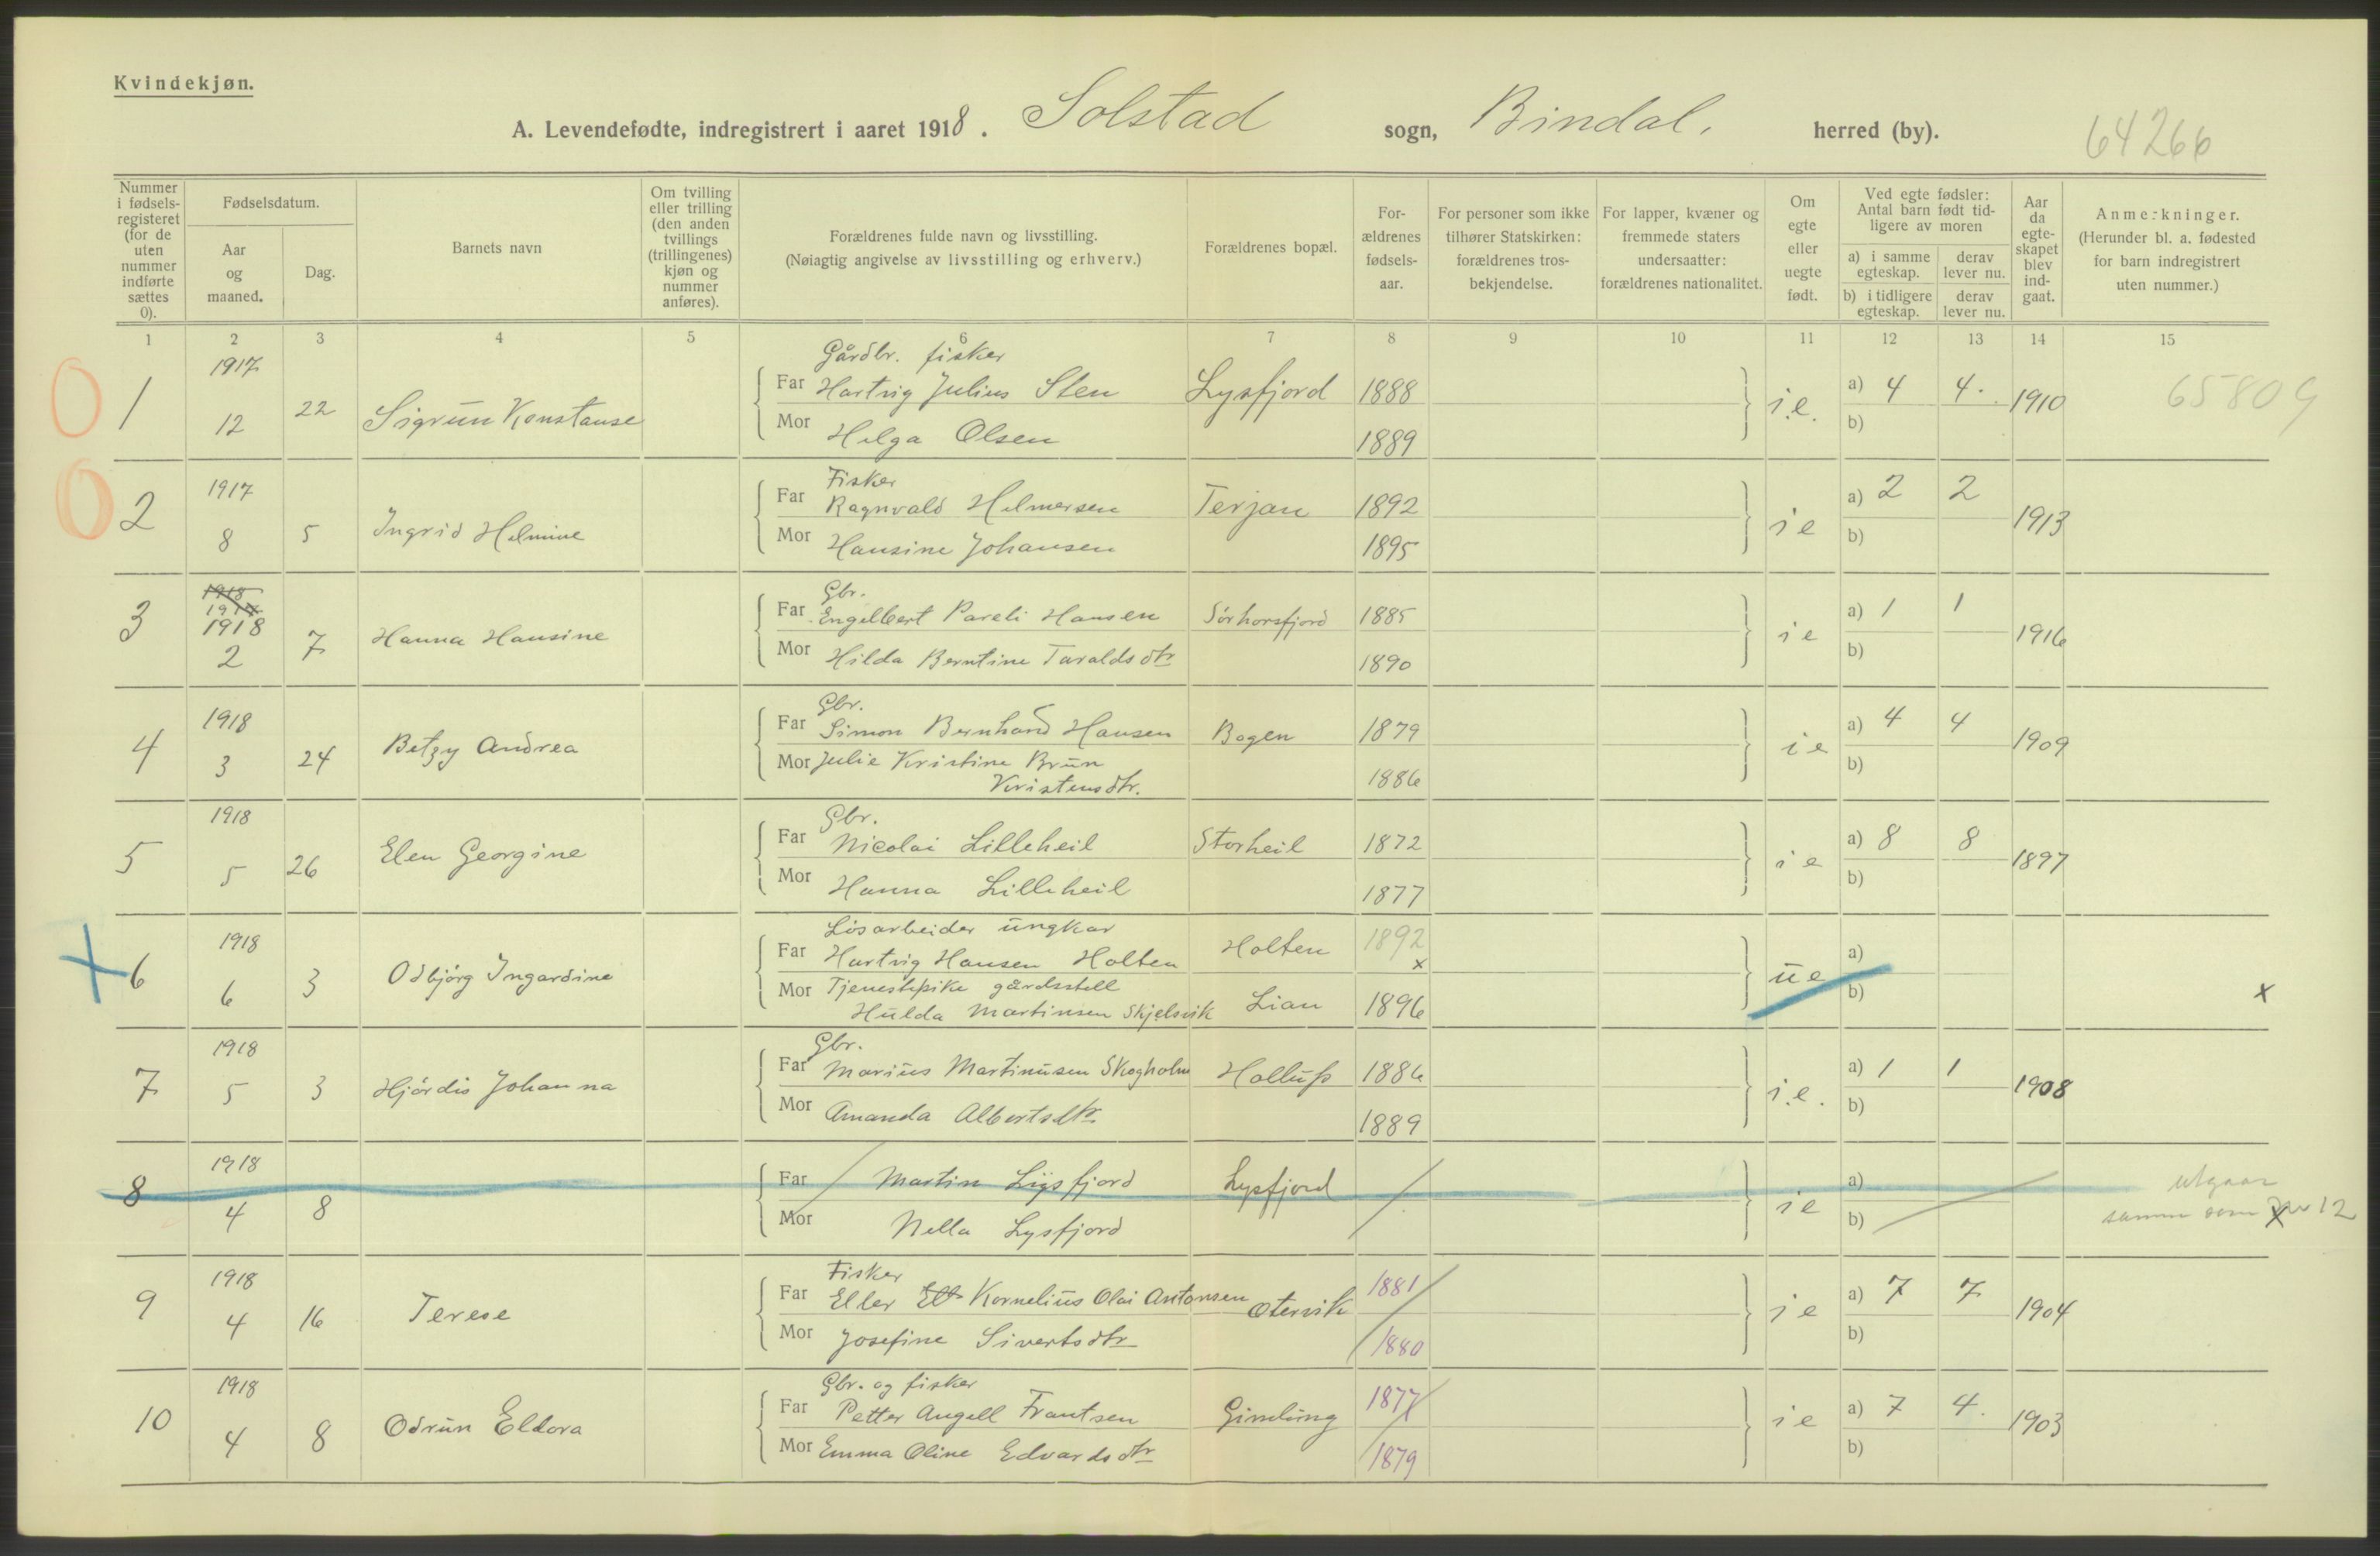 Kvindekjøn.
A. Levendefødte, indregistrert i aaret 1918. Solstad sogn, Bindal, herred (by). 64266
Nummer i fødsels-registeret (for de uten nummer indførte sættes 0).
Fødselsdatum.
Aar og maaned.
Dag.
Barnets navn
Om tvilling eller trilling (den anden tvillings (trillingenes) kjøn og nummer anføres).
Forældrenes fulde navn og livsstilling. (Nøiagtig angivelse av livsstilling og erhverv.)
Forældrenes bopæl.
For-ældrenes fødsels-aar.
For personer som ikke tilhører Statskirken: forældrenes tros-bekjendelse.
For lapper, kvæner og fremmede staters undersaatter: forældrenes nationalitet.
Om egte eller uegte født.
Ved egte fødsler: Antal barn født tid-ligere av moren
a) i samme egteskap. derav lever nu.
b) i tidligere egteskap. derav lever nu.
Aar da egte-skapet blev ind-gaat.
Anmerkninger. (Herunder bl. a. fødested for barn indregistrert uten nummer.)
1 2 3 4 5 6 7 8 9 10 11 12 13 14 15
0 1 1917 12 22 Sigrun Konstanse
Gårdbr. fisker
Far Hartvig Julius Sten Lysfjord 1888 i.e. a) 4 4. 1910 65809
Mor Helga Olsen 1889 b)
0 2 1917 8 5 Ingrid Helmine
Fisker
Far Ragnvald Helmersen Terjan 1892 i e a) 2 2 1913
Mor Hansine Johansen 1895 b)
3 1918 1917 1918 2 7 Hanna Hansine
Gbr.
Far Engelbert Pareli Hansen Sørhorsfjord 1885 i e a) 1 1 1916
Mor Hilda Berntine Taraldsdtr 1890 b)
4 1918 3 24 Betzy Andrea
Gbr.
Far Simon Bernhard Hansen Bogen 1879 i e a) 4 4 1909
Mor Julie Kristine Brun
Kristensdtr. 1886 b)
5 1918 5 26 Elen Georgine
Gbr.
Far Nicolai Lilleheil Storheil 1872 i e a) 8 8 1897
Mor Hanna Lilleheil 1877 b)
x 6 1918 6 3 Odbjørg Ingardine
Løsarbeider ungkar
Far Hartvig Hansen Holten Holten 1892 x u e a)
Mor Tjenestepike gårdsstell
Hulda Martinsen Skjelsvik Lian 1896 b) x
7 1918 5 3 Hjørdis Johanna
Gbr.
Far Marius Martinusen Skogholm 1886 i.e. a) 1 1 1908
Mor Amanda Albertsdtr. 1889 b)
8 1918 4 8
Far Martin Lysfjord Lysfjord i e a) utgaar
Mor Nella Lysfjord b) samme som nr 12
9 1918 4 16 Terese
Fisker
Far Eller Kornelius Olai Antonsen Otervik 1881 i e a) 7 7 1904
Mor Josefine Sivertsdtr 1880 b)
10 1918 4 8 Odrun Eldora
Gbr. og fisker
Far Petter Angell Frantsen Gimling 1877 i e a) 7 4. 1903
Mor Emma Oline Edvardsdtr 1879 b)